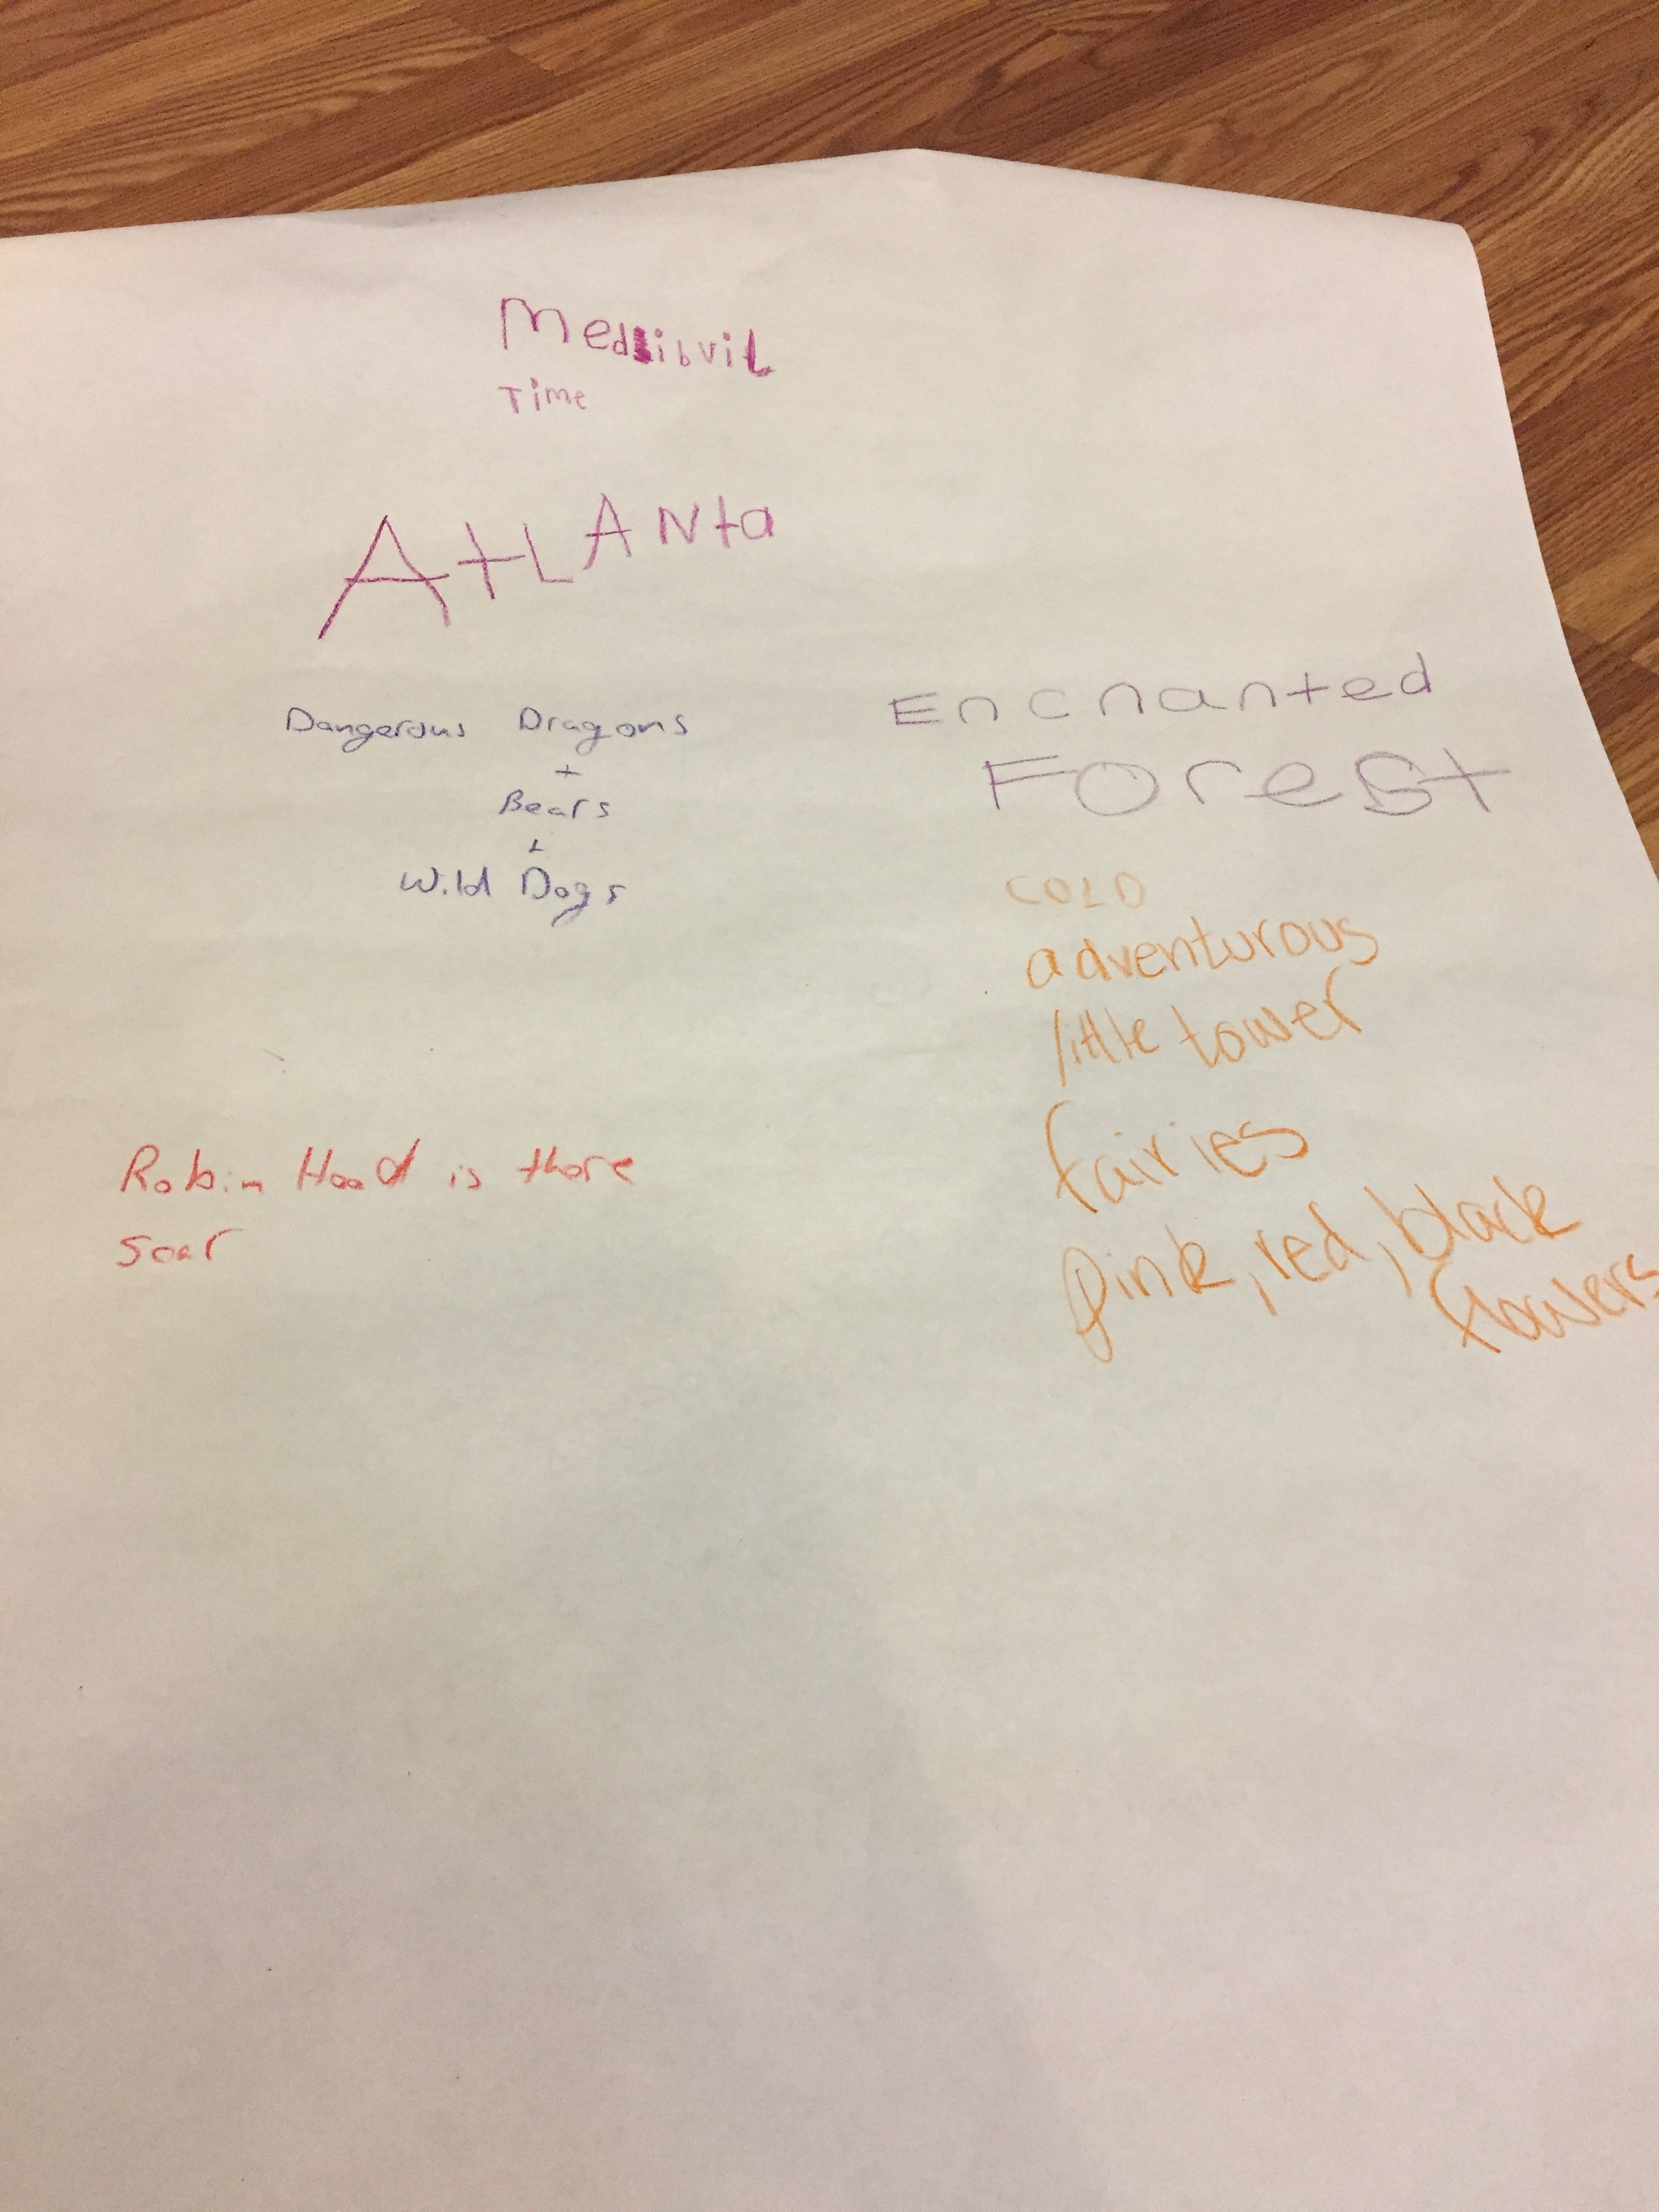 Medibvil
Time
AtLANta
Dangerous Dragons
+
Bears
+
Wild Dogs
Robin Hood is there
soar
Enchanted
Forest
COLD
adventurous
little tower
fairies
pink, red, black
flowers